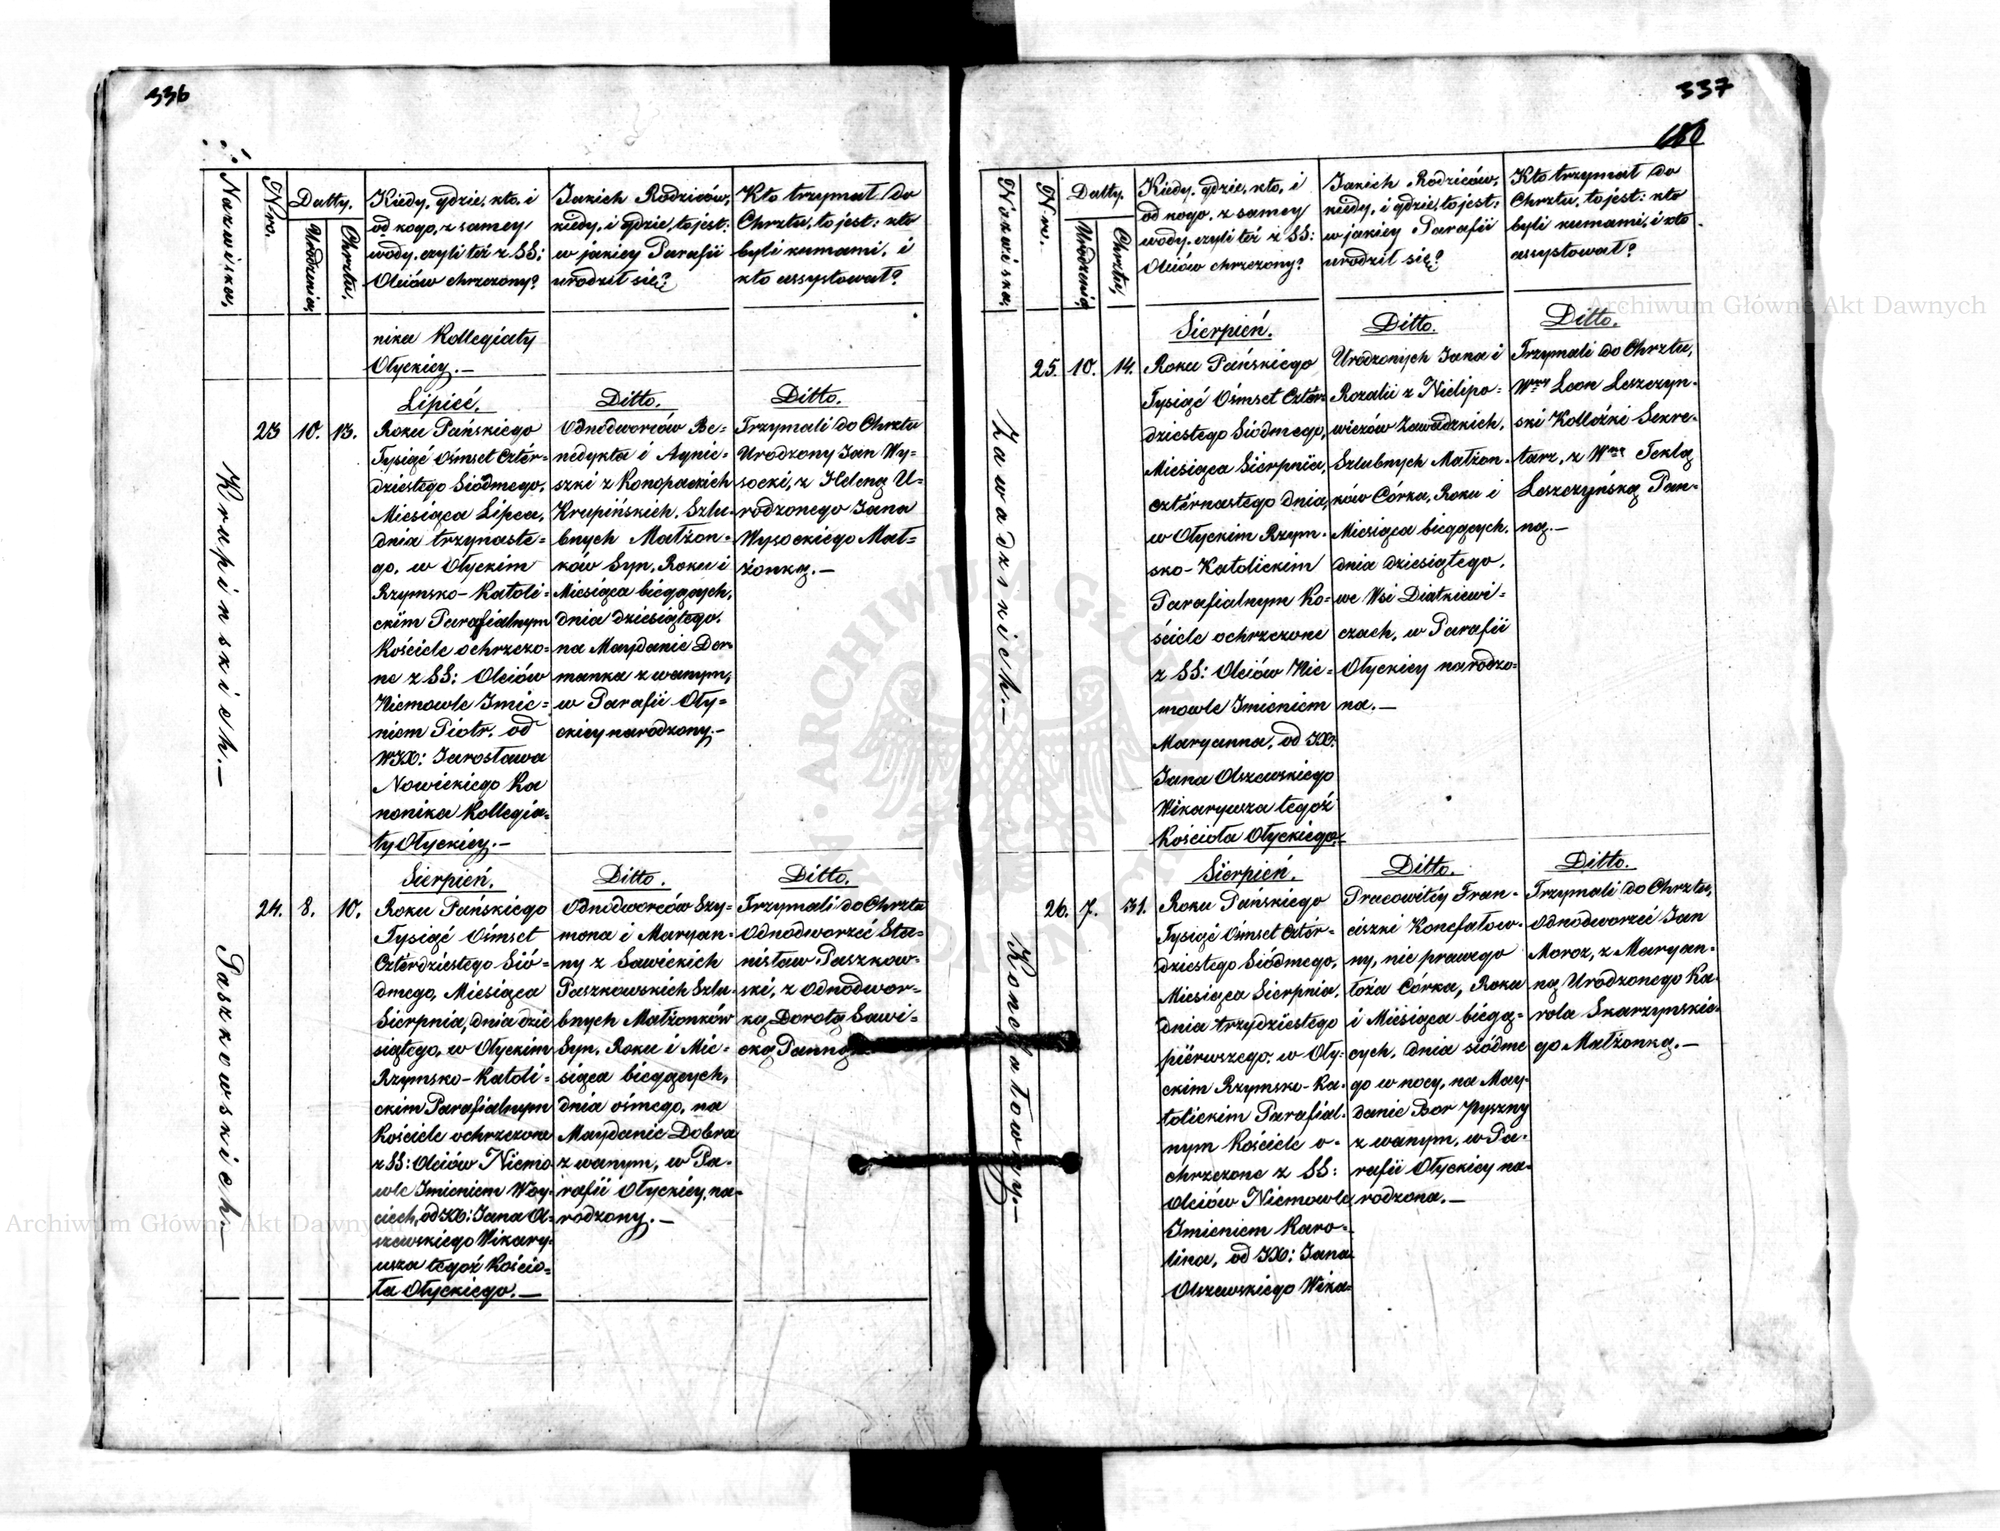 336
Nazwiska.
Nro.
Datty.
Urodzenia.
Chrztu.
Kiedy, gdzie, kto, i
od kogo, z samey
wody, czyli też z SS:
Oleiów chrzczony?
Jakich Rodziców,
kiedy, i gdzie, to jest:
w jakiey Parafii
urodził się?
Kto trzymał do
Chrztu, to jest: kto
byli kumami, i
kto assystował?
nika Kollegiaty
Ołyckiey.—
Krupinskich.—
23 10. 13.
Lipiec.
Roku Pańskiego
Tysiąć Ośmset Czter-
dziestego Siódmego,
Miesiąca Lipca,
dnia trzynaste-
go, w Ołyckim
Rzymsko-Katoli-
ckim Parafialnym
Kościele ochrzczo-
ne z SS: Oleiów
Niemowle Imie-
niem Piotr, od
WJX: Jarosława
Nowickiego Ka
nonika Kollegia-
ty Ołyckiey.—
Ditto.
Odnodworców Be-
nedykta i Agnie-
szki z Konopackich
Krupińskich, Szlu-
bnych Małżon-
ków Syn, Roku i
Miesiąca bieggących,
dnia dziesiątego,
na Maydanie Der-
manka zwanym,
w Parafii Oły-
ckiey narodzony.—
Ditto.
Trzymali do Chrztu
Urodzony Jan Wy-
socki, z Heleną U-
rodzonego Jana
Wysockiego Mał-
żonką.—
Paszkowskich—
24. 8. 10.
Sierpień.
Roku Pańskiego
Tysiąć Ośmset
Czterdziestego Sió-
dmego, Miesiąca
Sierpnia, dnia dzie
siątego, w Ołyckim
Rzymsko-Katoli-
ckim Parafialnym
Kościele ochrzczone
z SS: Oleiów Niemo
wle Imieniem Woy-
ciech, od JX: Jana Ol-
szewskiego Wikary-
usza tegoż Kościo-
ła Ołyckiego.—
Ditto.
Odnodworców Szy-
mona i Maryan-
ny z Sawickich
Paszkowskich Szlu-
bnych Małżonków
Syn, Roku i Mie-
siąca bieggących,
dnia ósmego, na
Maydanie Dobra
zwanym, w Pa-
rafii Ołyckiey, na-
rodzony.—
Ditto.
Trzymali do Chrztu
Odnodworzec Sta-
nisław Paszkow-
ski, z Odnodwor-
ką Dorotą Sawi-
cką Panną
337
180
Nazwiska.
Nro.
Datty.
Urodzenia.
Chrztu.
Kiedy, gdzie, kto, i
od kogo, z samey
wody, czyli też z SS:
Oleiów chrzczony?
Jakich Rodziców,
kiedy, i gdzie, to jest:
w jakiey Parafii
urodził się?
Kto trzymał do
Chrztu, to jest: kto
byli kumami, i kto
assystował?
Zawadzkich.—
25. 10. 14.
Sierpień.
Roku Pańskiego
Tysiąć Ośmset Czter-
dziestego Siódmego,
Miesiąca Sierpnia,
czternastego dnia,
w Ołyckim Rzym-
sko-Katolickim
Parafialnym Ko-
ściele ochrzczone
z SS: Oleiów Nie-
mowle Imieniem
Maryanna, od JX:
Jana Olszewskiego
Wikaryusza tegoż
Kościoła Ołyckiego.—
Ditto.
Urodzonych Jana i
Rozalii z Nielipo-
wiczów Zawadzkich,
Szlubnych Małżon-
ków Córka, Roku i
Miesiąca bieggących,
dnia dziesiątego,
we Wsi Diatkiewi-
czach, w Parafii
Ołyckiey narodzo-
na.—
Ditto.
Trzymali do Chrztu,
Wny Leon Leszczyn-
ski Kolleżki Sekre-
tarz, z Wną Teklą
Leszczyńską Pan-
ną.—
Koncfatowny.—
26. 7. 31.
Sierpień.
Roku Pańskiego
Tysiąć Ośmset Czter-
dziestego Siódmego,
Miesiąca Sierpnia,
dnia trzydziestego
pierwszego, w Oły-
ckim Rzymsko-Ka-
tolickim Parafial-
nym Kościele o-
chrzczone z SS:
Oleiów Niemowle
Imieniem Karo-
lina, od JX: Jana
Olszewskiego Wika-
Ditto.
Pracowitéy Fran-
ciszki Koncfatow-
ny, nie prawego
łoża Córka, Roku
i Miesiąca biegą-
cych, dnia siódme
go w nocy, na May-
danie Bor Pyszny
zwanym, w Pa-
rafii Ołyckiey na-
rodzona.—
Ditto.
Trzymali do Chrztu,
Odnodworzec Jan
Moroz, z Maryan-
ną Urodzonego Ka-
rola Skarzymskie-
go Małżonką.—
Archiwum Główne Akt Dawnych
Archiwum Główne Akt Dawnych